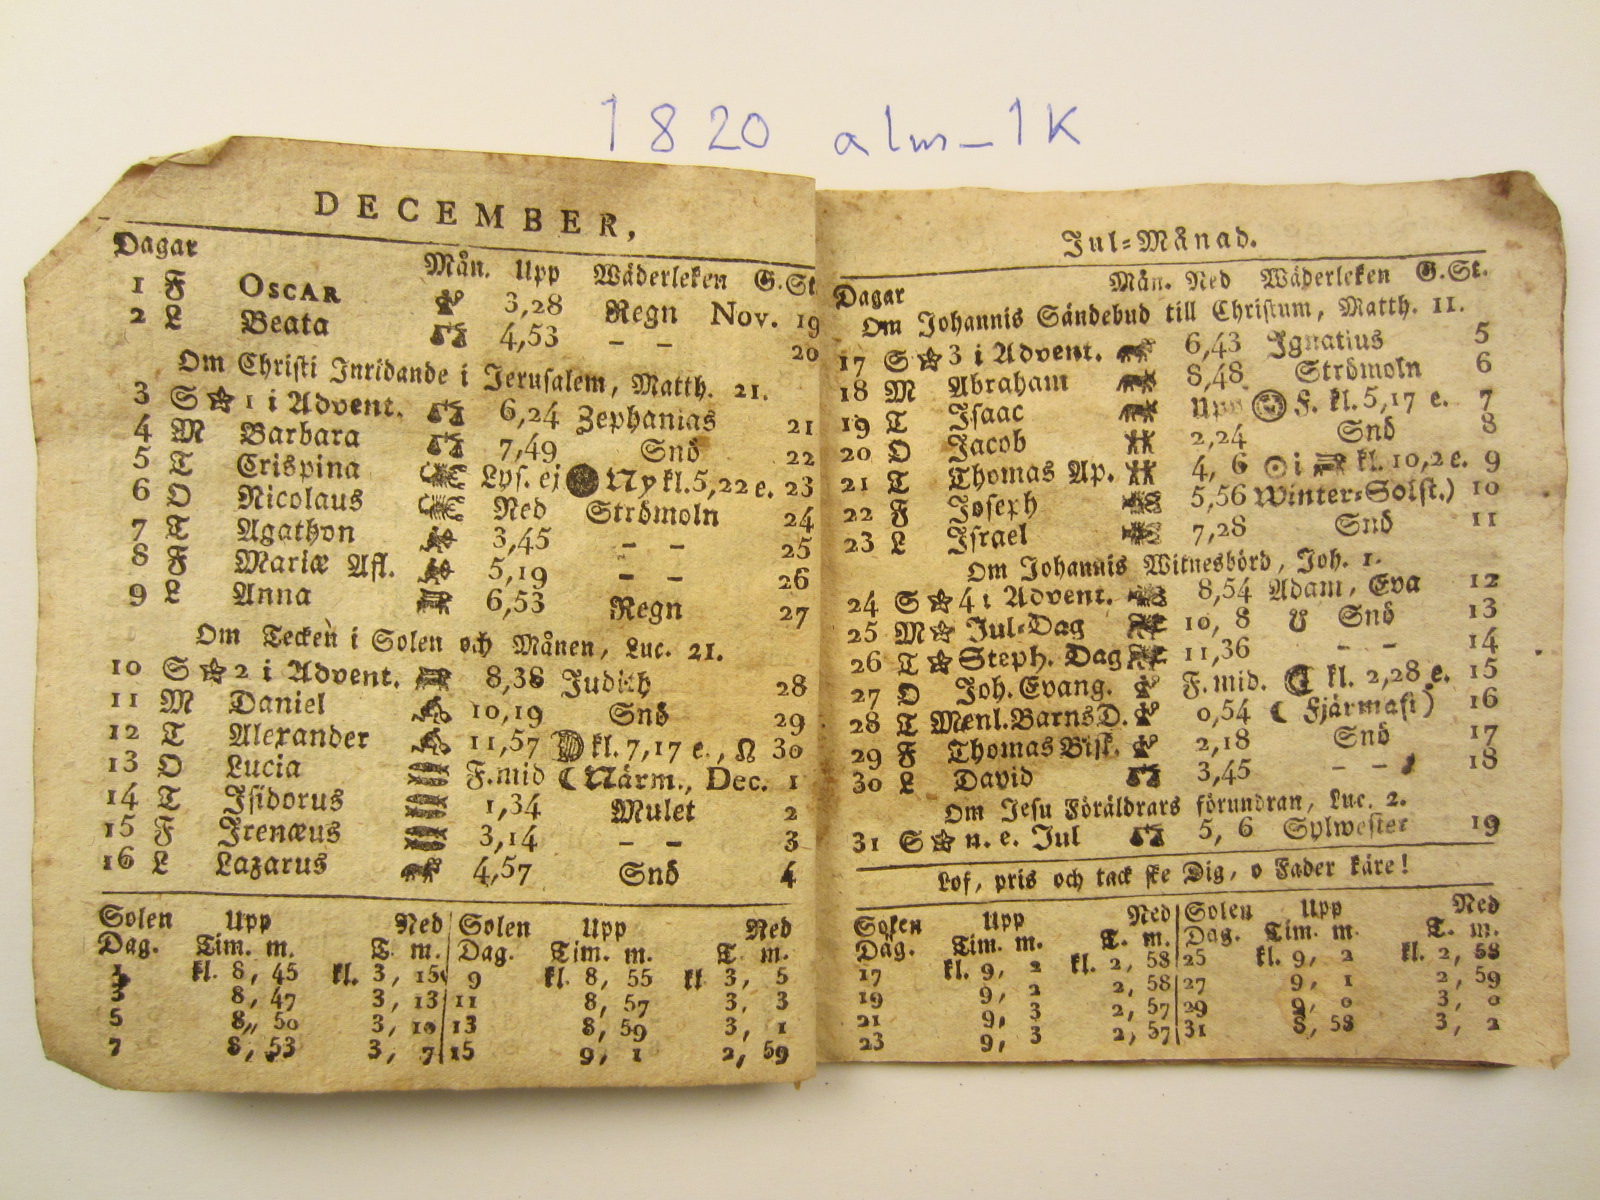 1820 alm_1K
DECEMBER,
Dagar Mån. Upp Wäderleken G.St
1 F OSCAR 3,28 Regn Nov. 19
2 L Beata 4,53 – – 20
Om Christi Inridande i Jerusalem, Matth. 21.
3 S 1 i Advent. 6,24 Zephanias 21
4 M Barbara 7,49 Snö 22
5 T Crispina Lys. ej Ny kl. 5,22 e. 23
6 O Nicolaus Ned Strömoln 24
7 T Agathon 3,45 – – 25
8 F Mariæ Afl. 5,19 – – 26
9 L Anna 6,53 Regn 27
Om Tecken i Solen och Månen, Luc. 21.
10 S 2 i Advent. 8,38 Judith 28
11 M Daniel 10,19 Snö 29
12 T Alexander 11,57 kl. 7,17 e., ☊ 30
13 O Lucia F.mid ☾ Närm., Dec. 1
14 T Isidorus 1,34 Mulet 2
15 F Irenæus 3,14 – – 3
16 L Lazarus 4,57 Snö 4
Solen Upp Ned Solen Upp Ned
Dag. Tim. m. T. m. Dag. Tim. m. T. m.
1 kl. 8, 45 kl. 3, 15 9 kl. 8, 55 kl 3, 5
3 8, 47 3, 13 11 8, 57 3, 3
5 8,, 50 3, 10 13 8, 59 3, 1
7 8, 53 3, 7 15 9, 1 2, 59
Jul=Månad.
Dagar Mån. Ned Wäderleken G.St.
Om Johannis Sändebud till Christum, Matth. 11.
17 S 3 i Advent. 6,43 Ignatius 5
18 M Abraham 8,48 Strömoln 6
19 T Isaac Upp F. kl. 5,17 e. 7
20 O Jacob 2,24 Snö 8
21 T Thomas Ap. 4, 6 ☉ i kl. 10,2 e. 9
22 F Joseph 5,56 Winter=Solst.) 10
23 L Israel 7,28 Snö 11
Om Johannis Witnesbörd, Joh. 1.
24 S 4 i Advent. 8,54 Adam, Eva 12
25 M Jul=Dag 10, 8 ☋ Snö 13
26 T Steph. Dag 11,36 – – 14
27 O Joh. Evang. F. mid. ☾ kl. 2,28 e. 15
28 T Menl. Barns D. 0,54 ☾ Fjärmast) 16
29 F Thomas Bisk. 2,18 Snö 17
30 L David 3,45 – – 18
Om Jesu Föräldrars förundran, Luc. 2.
31 S n. e. Jul 5, 6 Sylwester 19
Lof, pris och tack ske Dig, o Fader käre!
Solen Upp Ned Solen Upp Ned
Dag. Tim. m. T. m. Dag. Tim. m. T. m.
17 kl. 9, 2 kl. 2, 58 25 kl. 9, 2 kl. 2, 58
19 9, 2 2, 58 27 9, 1 2, 59
21 9, 3 2, 57 29 9, 0 3, 0
23 9, 3 2, 57 31 8, 58 3, 2